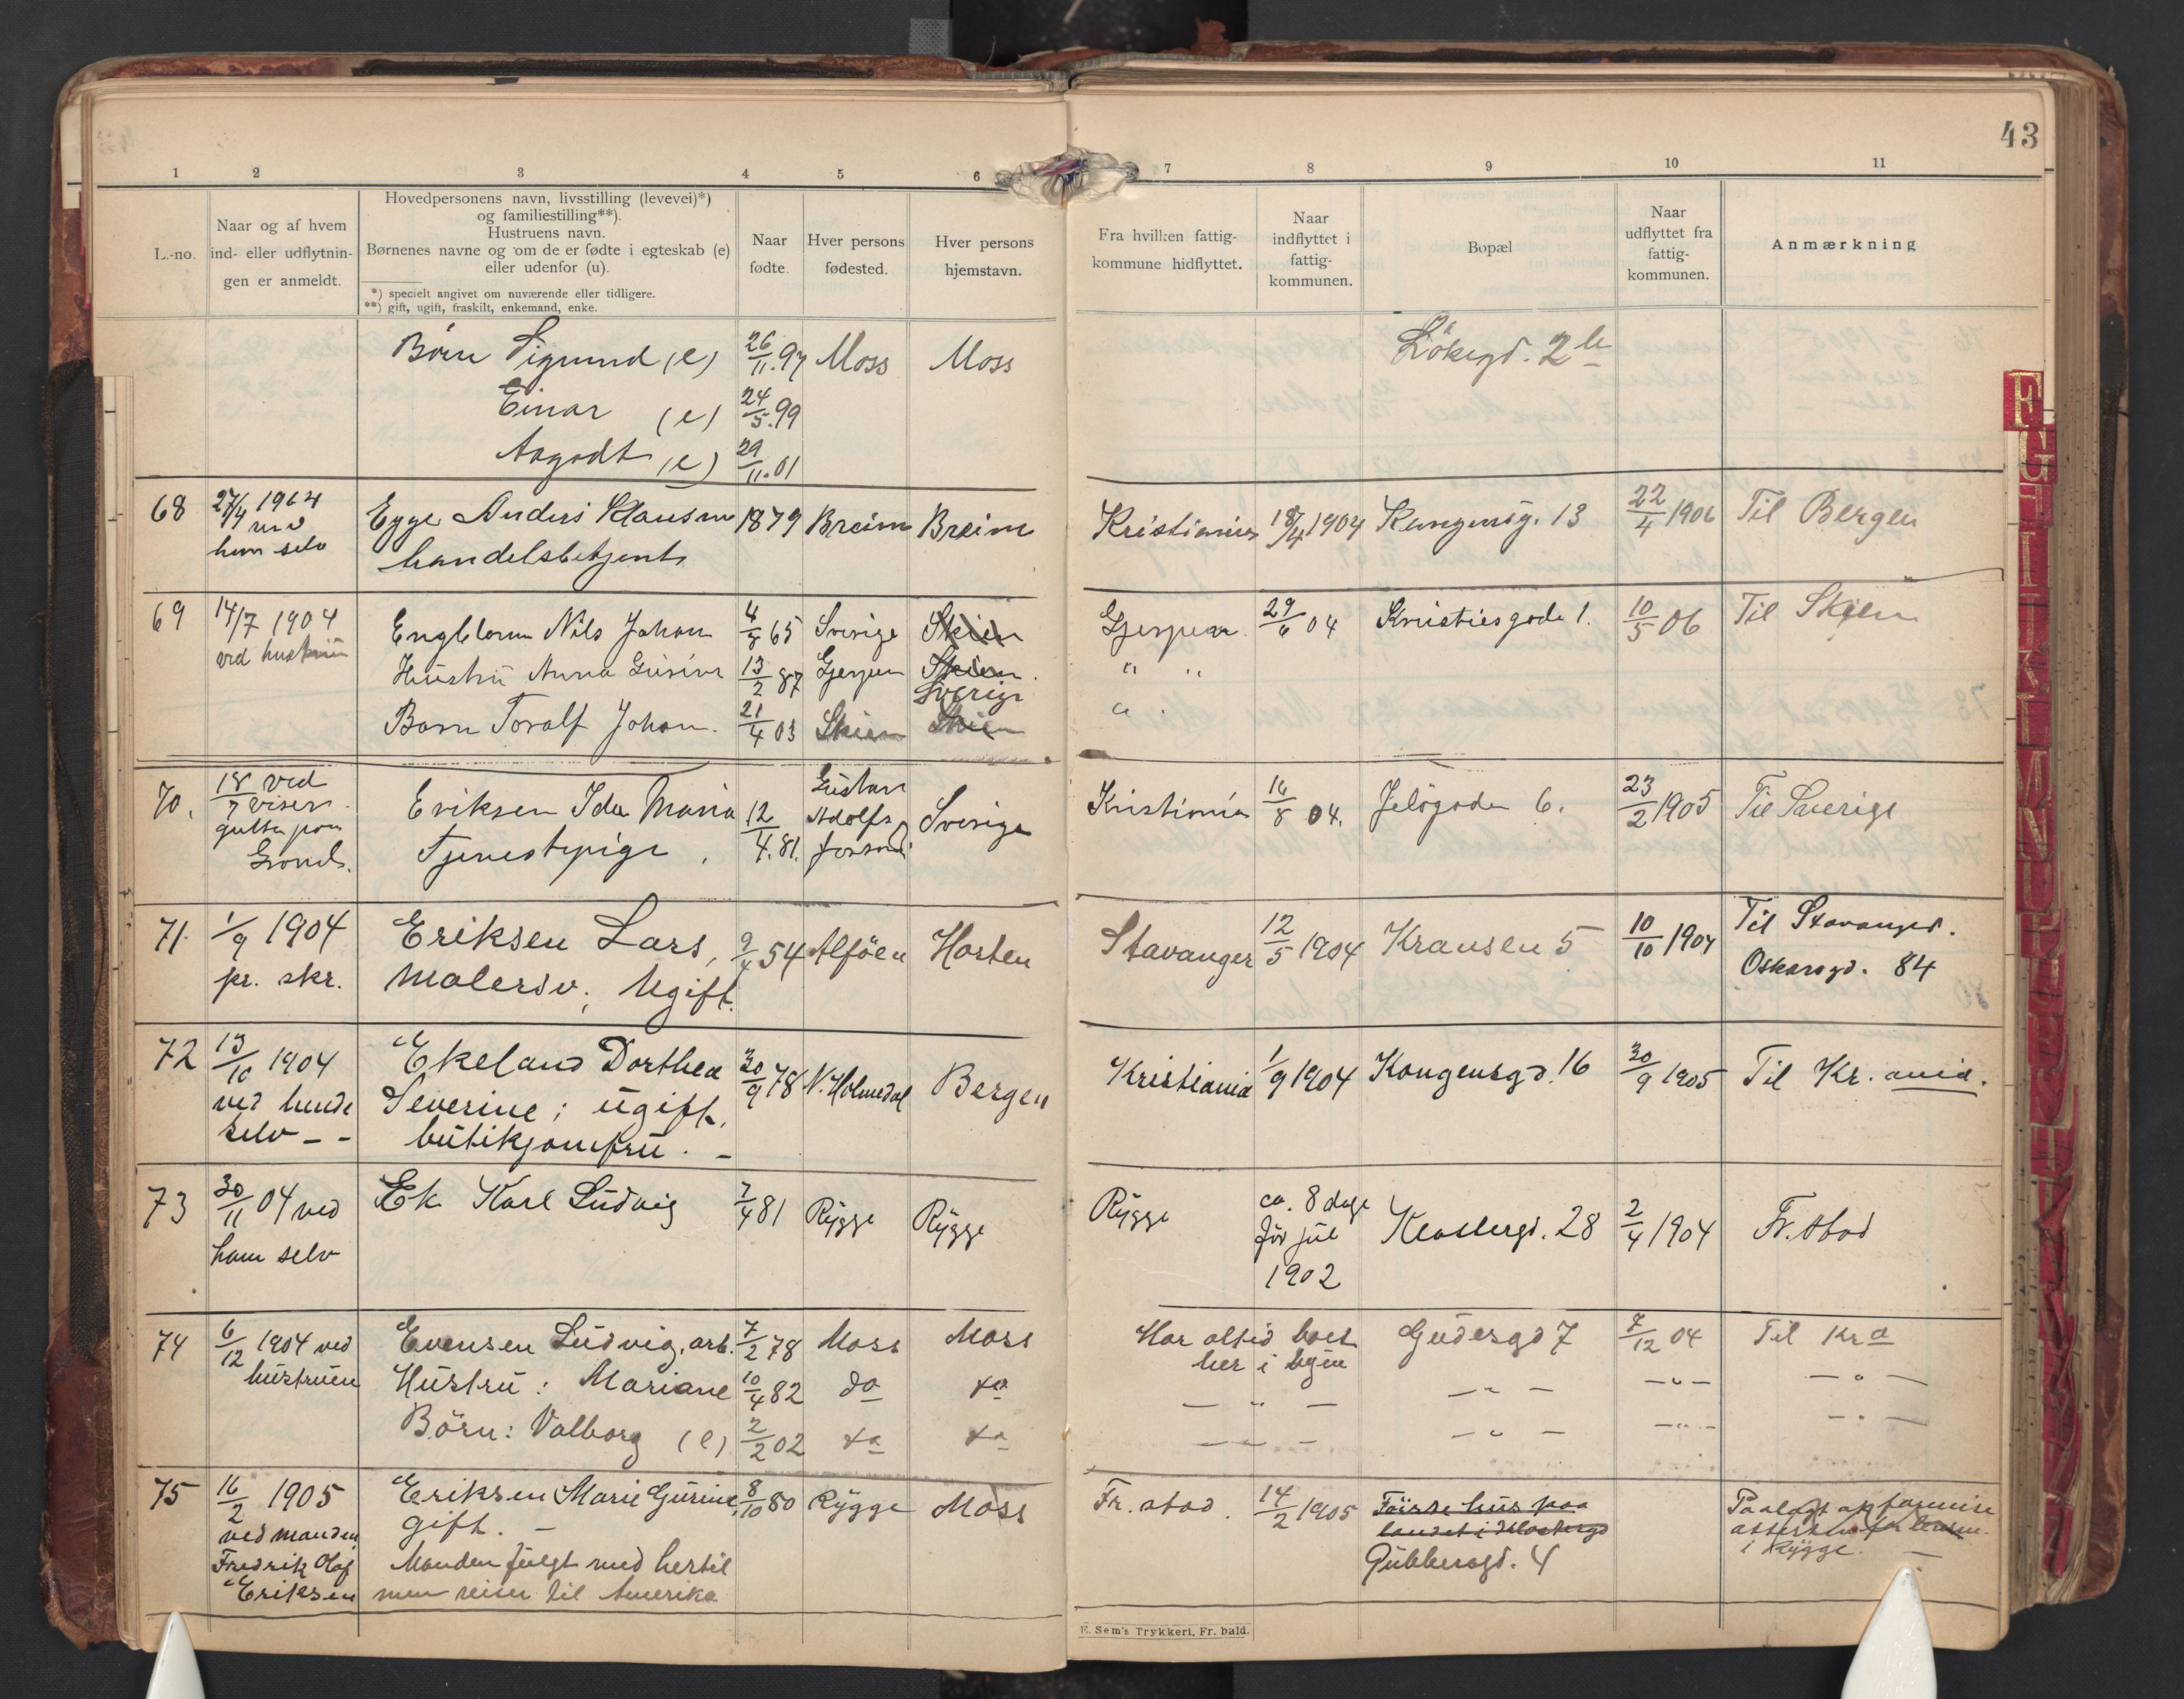 43
1 2 3 4 5 6 7 8 9 10 11
L.-no.
Naar og af hvem
ind- eller udflytnin-
gen er anmeldt.
Hovedpersonens navn, livsstilling (levevei)*)
og familiestilling**).
Hustruens navn.
Børnenes navne og om de er fødte i egteskab (e)
eller udenfor (u).
*) specielt angivet om nuværende eller tidligere.
**) gift, ugift, fraskilt, enkemand, enke.
Naar
fødte.
Hver persons
fødested.
Hver persons
hjemstavn.
Fra hvilken fattig-
kommune hidflyttet.
Naar
indflyttet i
fattig-
kommunen.
Bopæl
Naar
udflyttet fra
fattig-
kommunen.
Anmærkning
Börn Sigmund (e) 26/11.97 Moss Moss
Einar (e) 24/5.99
Aagodt (e) 29/11.01
68
27/4 1904
ved
ham selv
Egge Anders Klausen
handelsbetjent
1879 Breim Breim
Kristiania 18/4 1904 Kongensg. 13 22/4 1906 Til Bergen
69
14/7 1904
ved hustruen
Nils Johan 65 Sverige Skien
Hustrü Anna 13/2 87 Gjerpen Skien
Sverige
Barn Toralf Johan. 21/4 03 Skien Skien
Gjerpen 29/6 04 Kristiesgade 1. 10/5 06 Til Skien
" "
"
70.
18/7 ved
viser
gutten paa
Grand.
Eriksen Ida Maria
Tjenestepige
12/4.81.
Gustav
Adolfs
Sverige
Kristiania 16/8 04. Jelögaden 6. 23/2 1905 Til Sverige
71.
1/9 1904
pr. skr.
Eriksen Lars,
Malersv; Ugift.
9/4 54 Alföen Horten
Stavanger 12/5 1904 Kransen 5 10/10 1904
Til Stavanger.
Oskarsgd. 84
72
13/10 1904
ved hende
selv - -
Ekeland Dorthea
Severine; ügift,
bütikjomfrü. -
30/9 78 N. Holmedal Bergen
Kristiania 1/9 1904 Kongensgd. 16 30/9 1905 Til Kr.ania.
73
30/11 04 ved
ham selv
Ek Karl Lüdvig
7/4 81 Rygge Rygge
Rygge
ca. 8 dage
för jül
1902
Klostergd. 28 2/4 1904 Fr.stad
74
6/12 1904 ved
hüstrüen
Evensen Lüdvig, arb. 7/2 78 Moss Moss
Hüstrü: Mariane 10/4 82 do do
Börn: Valborg (e) 2/2 02 do do
Har altid boet
her i byen
Gudesgd 7 7/12 04 Til Kra
— " — — " — — " — — " —
— " — — " — — " — — " —
75
16/2 1905
ved manden
Fredrik Olaf
Eriksen
Eriksen Marie Gürine,
gift. -
Manden fülgt med hertil
men reiser til Amerika
8/10 80 Rygge Moss
Fr.stad. 14/2 1905
hüs paa
landet i Klostergd
Gübbersgd. 4
Paalagt at
i Rygge. —
E. Sem's Trykkeri, Fr. hald.